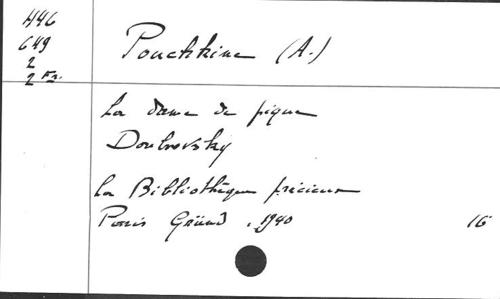 446
649
2
2 Fr.
Pouchkine (A.)
La dame de pique
Doubrovsky
La Bibliothèque précieuse
Paris Gründ, 1940 16